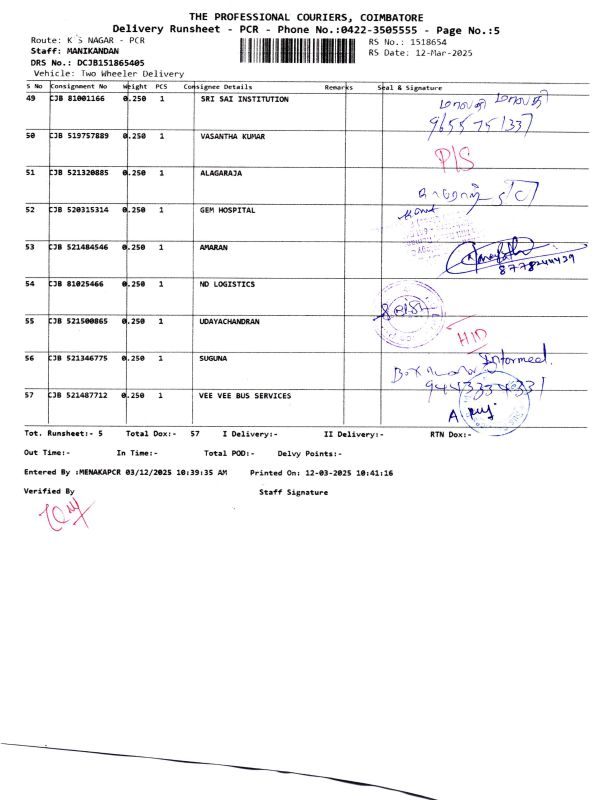 THE PROFESSIONAL COURIERS, COIMBATORE
Delivery Runsheet - PCR - Phone No.:0422-3505555 - Page No.:5
Route: K S NAGAR - PCR RS No.: 1518654
Staff: MANIKANDAN RS Date: 12-Mar-2025
DRS No.: DCJB151865405
Vehicle: Two Wheeler Delivery
S No Consignment No Weight PCS Consignee Details Remarks Seal & Signature
49 CJB 81001166 0.250 1 SRI SAI INSTITUTION மாலதி மாலதி
9655751337
50 CJB 519757889 0.250 1 VASANTHA KUMAR P/S
51 CJB 521320885 0.250 1 ALAGARAJA
52 CJB 520315314 0.250 1 GEM HOSPITAL
53 CJB 521484546 0.250 1 AMARAN
8778244429
54 CJB 81025466 0.250 1 ND LOGISTICS
55 CJB 521500865 0.250 1 UDAYACHANDRAN H/D
56 CJB 521346775 0.250 1 SUGUNA Informed.
Box
9443334331
57 CJB 521487712 0.250 1 VEE VEE BUS SERVICES
Tot. Runsheet:- 5 Total Dox:- 57 I Delivery:- II Delivery:- RTN Dox:-
Out Time:- In Time:- Total POD:- Delvy Points:-
Entered By :MENAKAPCR 03/12/2025 10:39:35 AM Printed On: 12-03-2025 10:41:16
Verified By Staff Signature